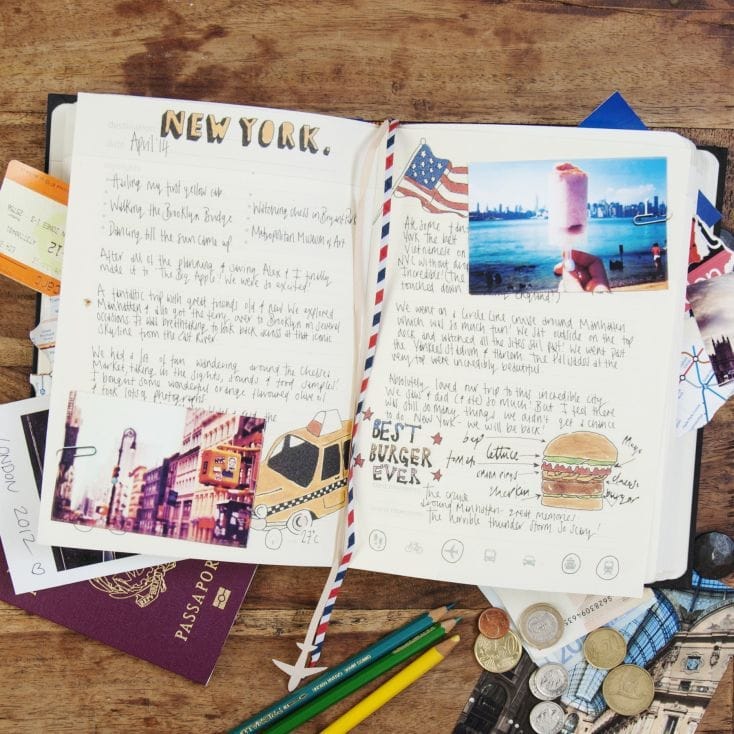 NEW YORK.
destination
date April 14
Hailing my first yellow cab
Walking the Brooklyn Bridge
Watching chess in Bryant Park
Dancing till the sun came up
Metropolitan Museum of Art
After all of the planning & saving Alex & I finally
made it to 'The Big Apple'! We were so excited!
A fantastic trip with great friends old & new We explored
Manhattan & also got the ferry over to Brooklyn on several
occasions It was breathtaking to look back across at that iconic
skyline from the East River
We had a lot of fun wandering around the Chelsea
Market, taking in the sights, sounds & food samples!
I bought some wonderful orange flavoured olive oil
& took lots of photographs
27°c
At some
York The best
Vietnamese
NYC without
Incredible! (The
touched down
England!)
We went on a Circle Line cruise around Manhattan
which was so much fun! We sat outside on the top
deck and watched all the sites sail past! We went past
the Yankees Stadium & Harlem The Palisades at the
very top were incredibly beautiful
Absolutely loved our trip to this incredible city
We saw & did (& ate) so much! But I feel there
was still so many things we didn't get a chance
to do New York - we will be back!
BEST
BURGER
EVER
lettuce
Mayo
onion rings
cheese
Gherkin
burger
The cruise
around Manhattan - great memories
The horrible thunder storm so scary!
LONDON 2012
PASSAPORT